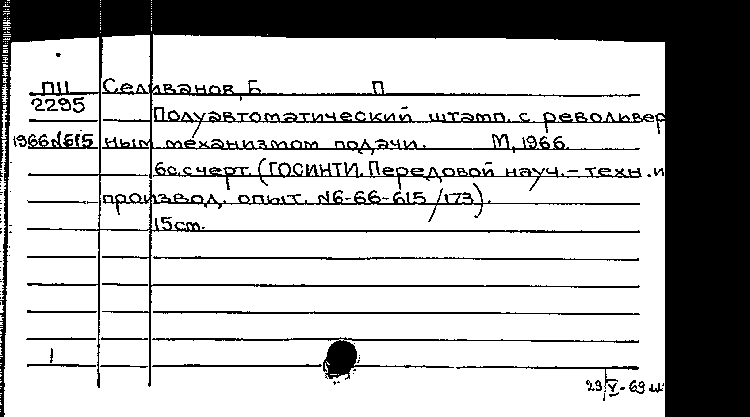 ПII Селиванов, Б П
2295
Полуавтоматический штамп. с револьвер
1966 №615 ным механизмом подачи. М, 1966.
6с.с черт. (ГОСИНТИ. Передовой науч.-техн. и
производ. опыт. №6-66-615/173).
15см.
1
29/V-69